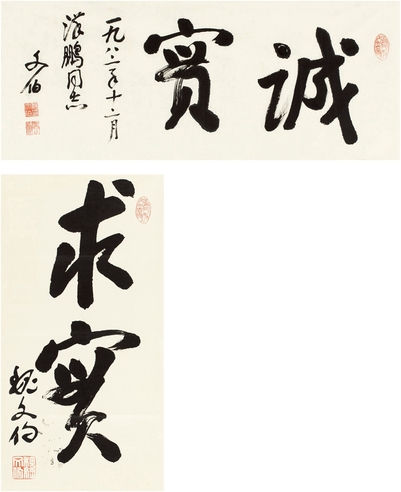 誠實
一九八二年十二月
鹏同志
文伯
求實
魏文伯